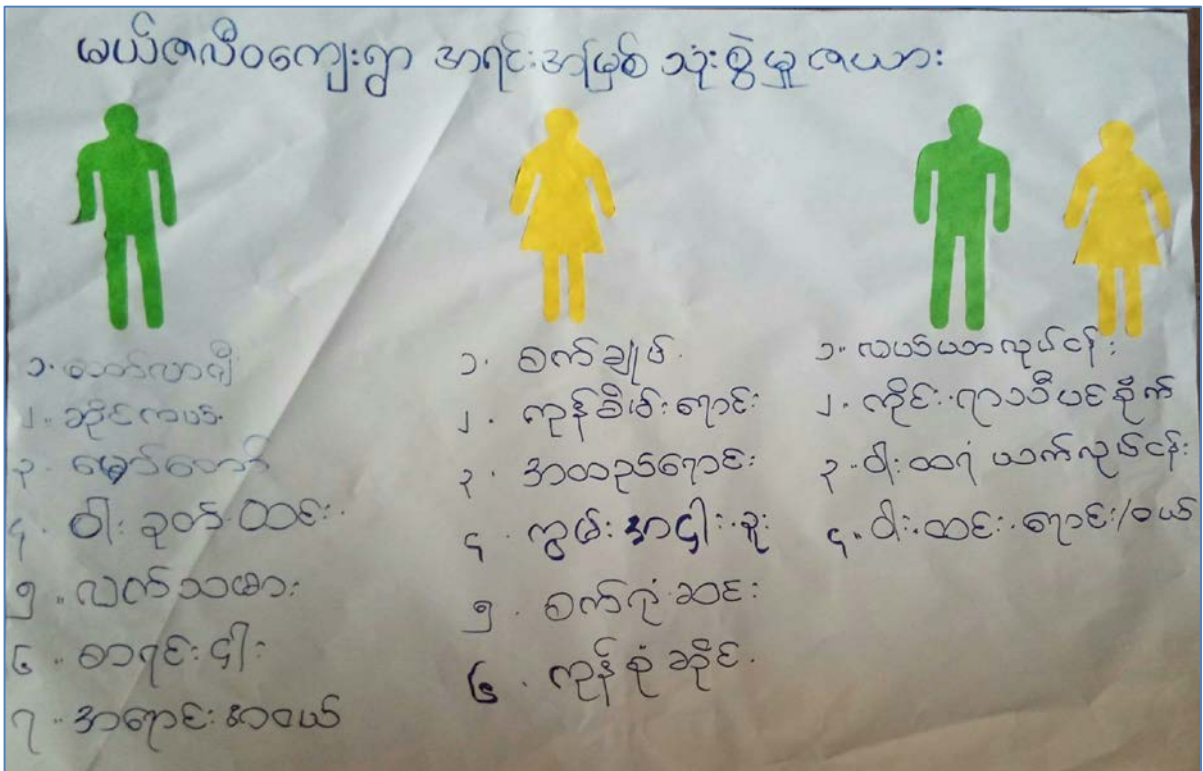 မယ်ဇလီဝကျေးရွာ အရင်းအမြစ် သုံးစွဲမှု ဇယား
၁. ထော်လာဂျီ
၂. ဆိုင်ကယ်
၃. မော်တော်
၄. ဝါး ခုတ် ထင်း
၅. လက်သမား
၆. စာရင်းငှါး
၇. အရောင်းအဝယ်
၁. စက်ချုပ်
၂. ကုန်စိမ်းရောင်း
၃. အထည်ရောင်း
၄. ကွမ်းအငှါးခူး
၅. စက်ရုံဆင်း
၆. ကုန်စုံဆိုင်
၁. လယ်ယာလုပ်ငန်း
၂. ကိုင်းရာသီပင်စိုက်
၃. ဝါးထရံ ယက်လုပ်ငန်း
၄. ဝါး.ထင်း.ရောင်း/ဝယ်